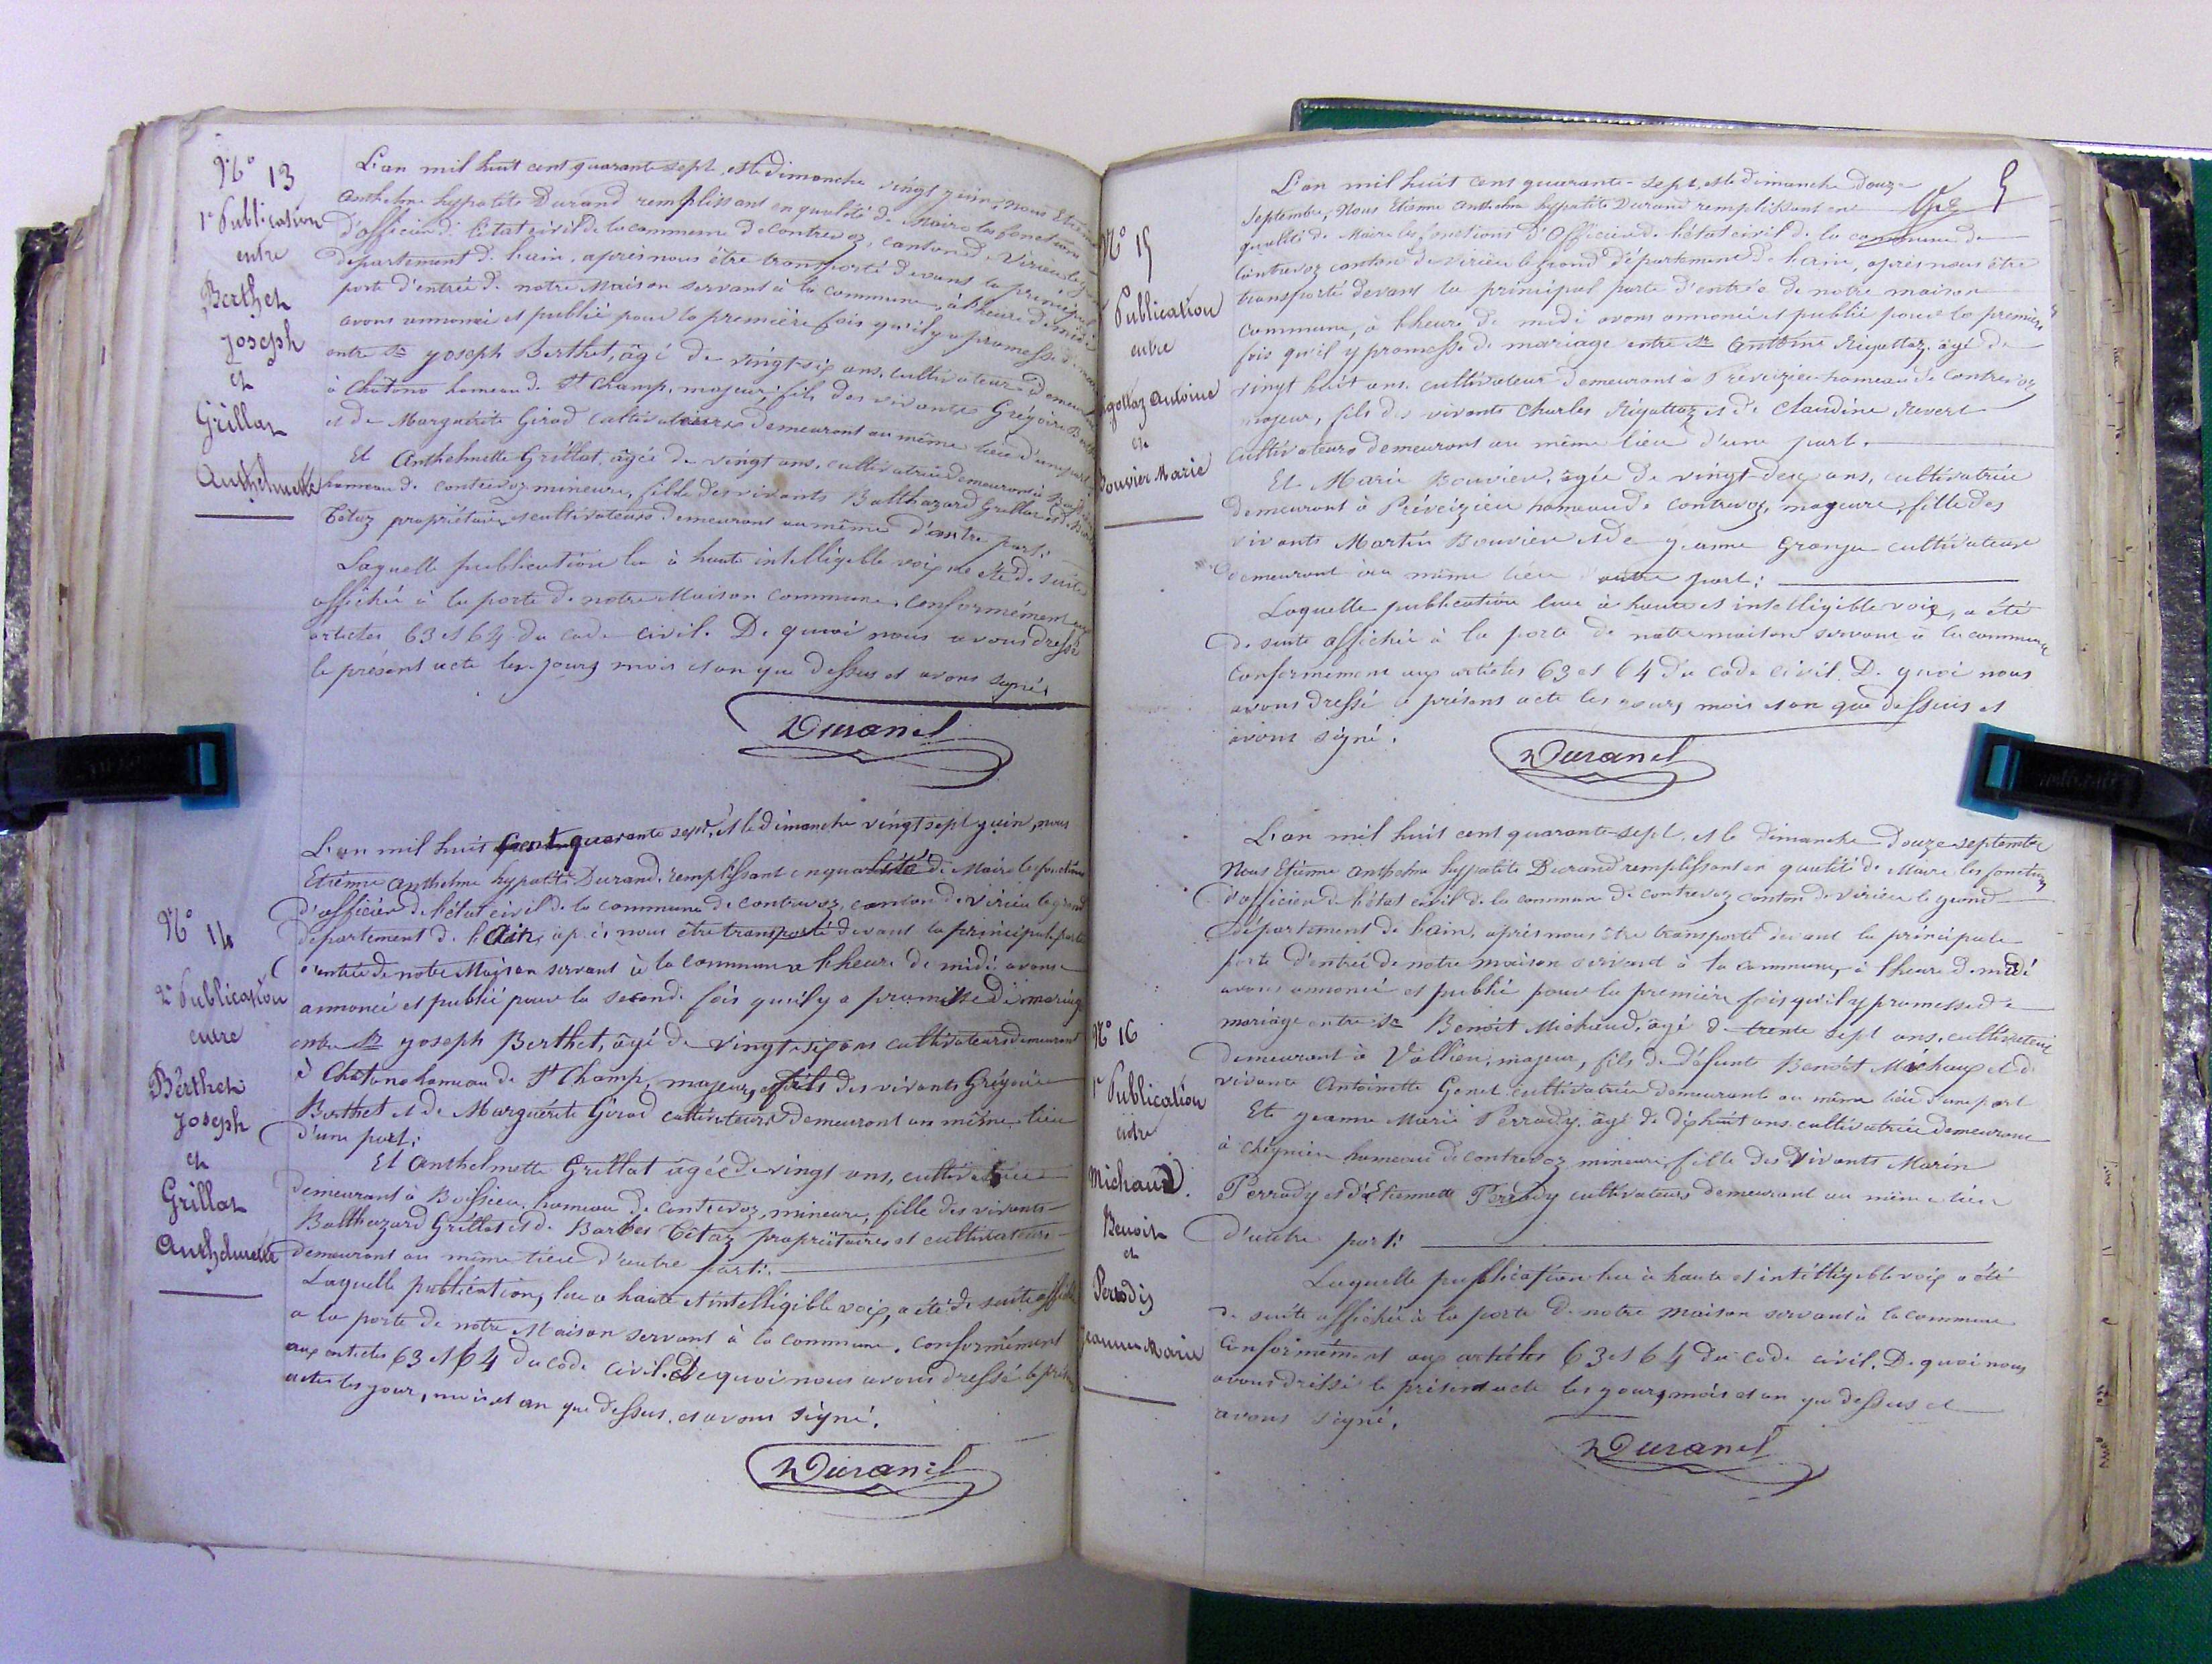 N° 13
1e Publication
entre
Berthet
Joseph
et
Grillat
Anthelmette
L'an mil huit cent quarante sept, et le dimanche vingt juin, nous Etienne
anthelme hypolite Durand remplissant en qualité de Maire les fonctions
d'officier de l'état civil de la commune de Contrevoz, canton de Virieu le
département de l'ain, après nous être transporté devant la principale
porte d'entrée de notre Maison servant à la commune, à l'heure de midi
avons annoncé et publié pour la première fois qu'il y a promesse de
entre Sr Joseph Berthet, âgé de vingt-six ans, cultivateur demeurant
à Chatono hameau de St Champ, majeur, fils des vivants Grégoire
et de Marguérite Girod cultivateurs demeurant au même lieu d'une part.
Et Anthelmette Grillat, âgée de vingt ans, cultivatrice demeurant à
hameau de contrevoz mineure, fille des vivants Balthazard Grillat et de
Bétaz propriétaires et cultivateurs demeurant au même d'autre part.
Laquelle publication lue à haute intelligible voix a été de suite
affichée à la porte de notre Maison commune, conformément aux
articles 63 et 64 du code civil. De quoi nous avons dressé
le présent acte les jours mois et an que dessus et avons signé.
Durand
N° 14
2e Publication
entre
Berthet
Joseph
et
Grillat
Anthelmette
L'an mil huit cent quarante sept, et le dimanche vingt sept juin, nous
Etienne anthelme hypolite Durand remplissant en qualité de Maire les fonctions
d'officier de l'état civil de la commune de contrevoz, canton de virieu le grand
département de l'Ain, après nous être transporté devant la principale porte
d'entrée de notre Maison servant à la commune a l'heure de midi avons
annoncé et publié pour la seconde fois qu'il y a promesse de mariage
entre Sr Joseph Berthet, âgé de vingt-six ans cultivateur demeurant
à Chatono hameau de St Champ, majeur, fils des vivants Grégoire
Berthet et de Marguérite Girod cultivateurs demeurant au même lieu
d'une part.
Et Anthelmette Grillat âgée de vingt ans, cultivatrice
demeurant à Boissieu hameau de contrevoz, mineure, fille des vivants
Balthazard Grillat et de Barbes Bétaz propriétaires et cultivateurs
demeurant au même lieu d'autre part.
Laquelle publication, lue a haute et intelligible voix, a été de suite affichée
a la porte de notre Maison servant à la commune, conformément
aux articles 63 et 64 du code civil. De quoi nous avons dressé le présent
acte les jour, mois et an que dessus, et avons signé.
Durand
5
N° 15
Publication
entre
Rigottaz Antoine
et
Bouvier Marie
L'an mil huit cent quarante-sept, et le dimanche douze
septembre, Nous Etienne anthelme hypolite Durand remplissant en
qualité de Maire les fonctions d'Officier de l'état civil de la commune de
Contrevoz canton de virieu le grand département de l'ain, après nous être
transporté devant la principal porte d'entrée de notre maison
commune, à l'heure de midi avons annoncé et publié pour la première
fois qu'il y promesse de mariage entre Sr Antoine Rigottaz, âgé de
vingt huit ans, cultivateur demeurant à Préveizieu hameau de Contrevoz
majeur, fils des vivants Charles Rigottaz et de Claudine Revert
cultivateurs demeurant au même lieu d'une part.
Et Marie Bouvier, âgée de vingt-deux ans, cultivatrice
demeurant à Préveizieu hameau de contrevoz, majeure, fille des
vivants Martin Bouvier et de Jeanne Granja cultivateurs
demeurant au même lieu d'autre part.
Laquelle publication lue à haute et intelligible voix, a été
de suite affichée à la porte de notre maison servant à la commune
conformément aux articles 63 et 64 du code civil. De quoi nous
avons dressé le présent acte les jours, mois et an que dessus et
avons signé.
Durand
N° 16
1e Publication
entre
Michaud
Benoit
et
Perrody
Jeanne Marie
L'an mil huit cent quarante-sept, et le dimanche douze septembre
Nous Etienne anthelme hypolite Durand remplissant en qualité de Maire les fonctions
d'officier de l'état civil de la commune de contrevoz canton de virieu le grand
département de l'ain, après nous être transporté devant la principale
porte d'entrée de notre maison servant à la commune, à l'heure de midi
avons annoncé et publié pour la première fois qu'il y promesse de
mariage entre Sr Benoit Michaud, âgé de trente sept ans, cultivateur
demeurant à Vollien, majeur, fils de défunt Benoit Michaux et de
vivante Antoinette Genet cultivatrice demeurant au même lieu d'une part
Et Jeanne Marie Perrody, âgé de dix huit ans cultivatrice demeurant
à Cheignieu hameau de contrevoz mineure, fille des Vivants Marin
Perrody et d'Etiennette Perrody cultivateurs demeurant au même lieu
d'autre part.
Laquelle publication lue à haute et intelligible voix a été
de suite affichée à la porte de notre maison servant à la commune
conformément aux articles 63 et 64 du code civil. De quoi nous
avons dressé le présent acte les jours, mois et an que dessus et
avons signé.
Durand